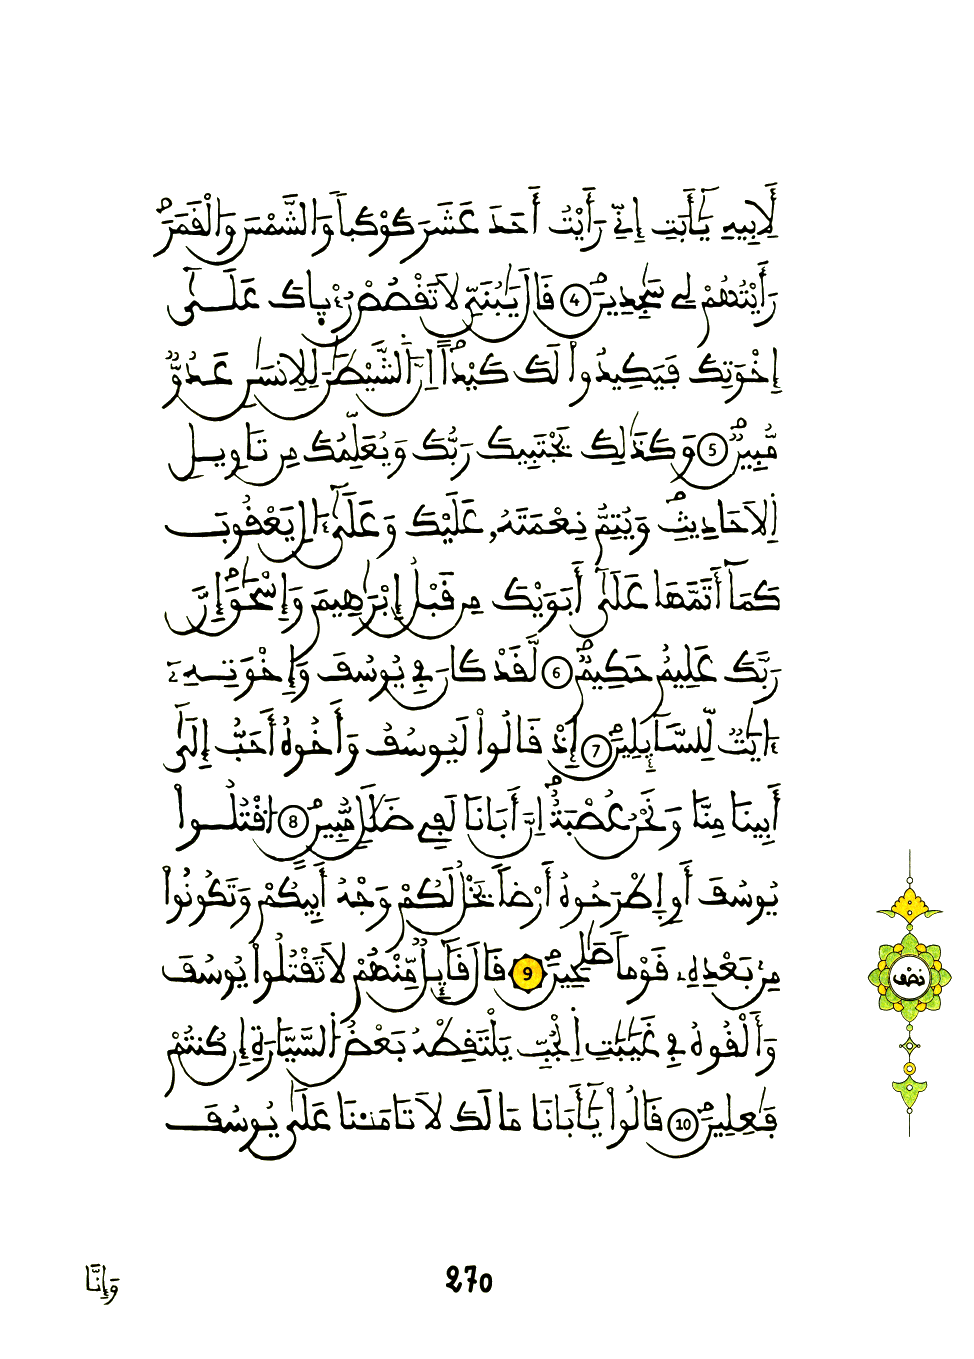 لِأَبِيهِ يَٰٓأَبَتِ إِنِّي رَأَيْتُ أَحَدَ عَشَرَ كَوْكَباٗ وَالشَّمْسَ وَالْقَمَرَ
رَأَيْتُهُمْ لِے سَٰجِدِينَۖ 4 قَالَ يَٰبُنَيِّ لَا تَقْصُصْ رُءْيٜاكَ عَلَىٰٓ
إِخْوَتِكَ فَيَكِيدُواْ لَكَ كَيْداًۖ اِنَّ اَ۬لشَّيْطَٰنَ لِلِانسَٰنِ عَدُوّٞ
مُّبِينٞۖ 5 وَكَذَٰلِكَ يَجْتَبِيكَ رَبُّكَ وَيُعَلِّمُكَ مِن تَاوِيلِ
اِ۬لَاحَادِيثِۖ وَيُتِمُّ نِعْمَتَهُۥ عَلَيْكَ وَعَلَىٰٓ ءَالِ يَعْقُوبَ
كَمَآ أَتَمَّهَا عَلَىٰٓ أَبَوَيْكَ مِن قَبْلُ إِبْرَٰهِيمَ وَإِسْحَٰقَۖ إِنَّ
رَبَّكَ عَلِيمٌ حَكِيمٞۖ 6 لَّقَدْ كَانَ فِے يُوسُفَ وَإِخْوَتِهِۦٓ
ءَايَٰتٞ لِّلسَّآئِلِينَۖ 7 إِذْ قَالُواْ لَيُوسُفُ وَأَخُوهُ أَحَبُّ إِلَىٰٓ
أَبِينَا مِنَّا وَنَحْنُ عُصْبَةٌۖ اِنَّ أَبَانَا لَفِے ضَلَٰلٖ مُّبِينٍۖ 8 اُ۟قْتُلُواْ
يُوسُفَ أَوِ اِ۪طْرَحُوهُ أَرْضاٗ يَخْلُ لَكُمْ وَجْهُ أَبِيكُمْ وَتَكُونُواْ
مِنۢ بَعْدِهِۦ قَوْماٗ صَٰلِحِينَۖ 9 قَالَ قَآئِلٞ مِّنْهُمْ لَا تَقْتُلُواْ يُوسُفَ
وَأَلْقُوهُ فِے غَيَٰبَٰتِ اِ۬لْجُبِّ يَلْتَقِطْهُ بَعْضُ اُ۬لسَّيَّارَةِ إِن كُنتُمْ
فَٰعِلِينَۖ 10 قَالُواْ يَٰٓأَبَانَا مَا لَكَ لَا تَامَ۬نَّا عَلَىٰ يُوسُفَ
نصْف
وَإِنَّا
270